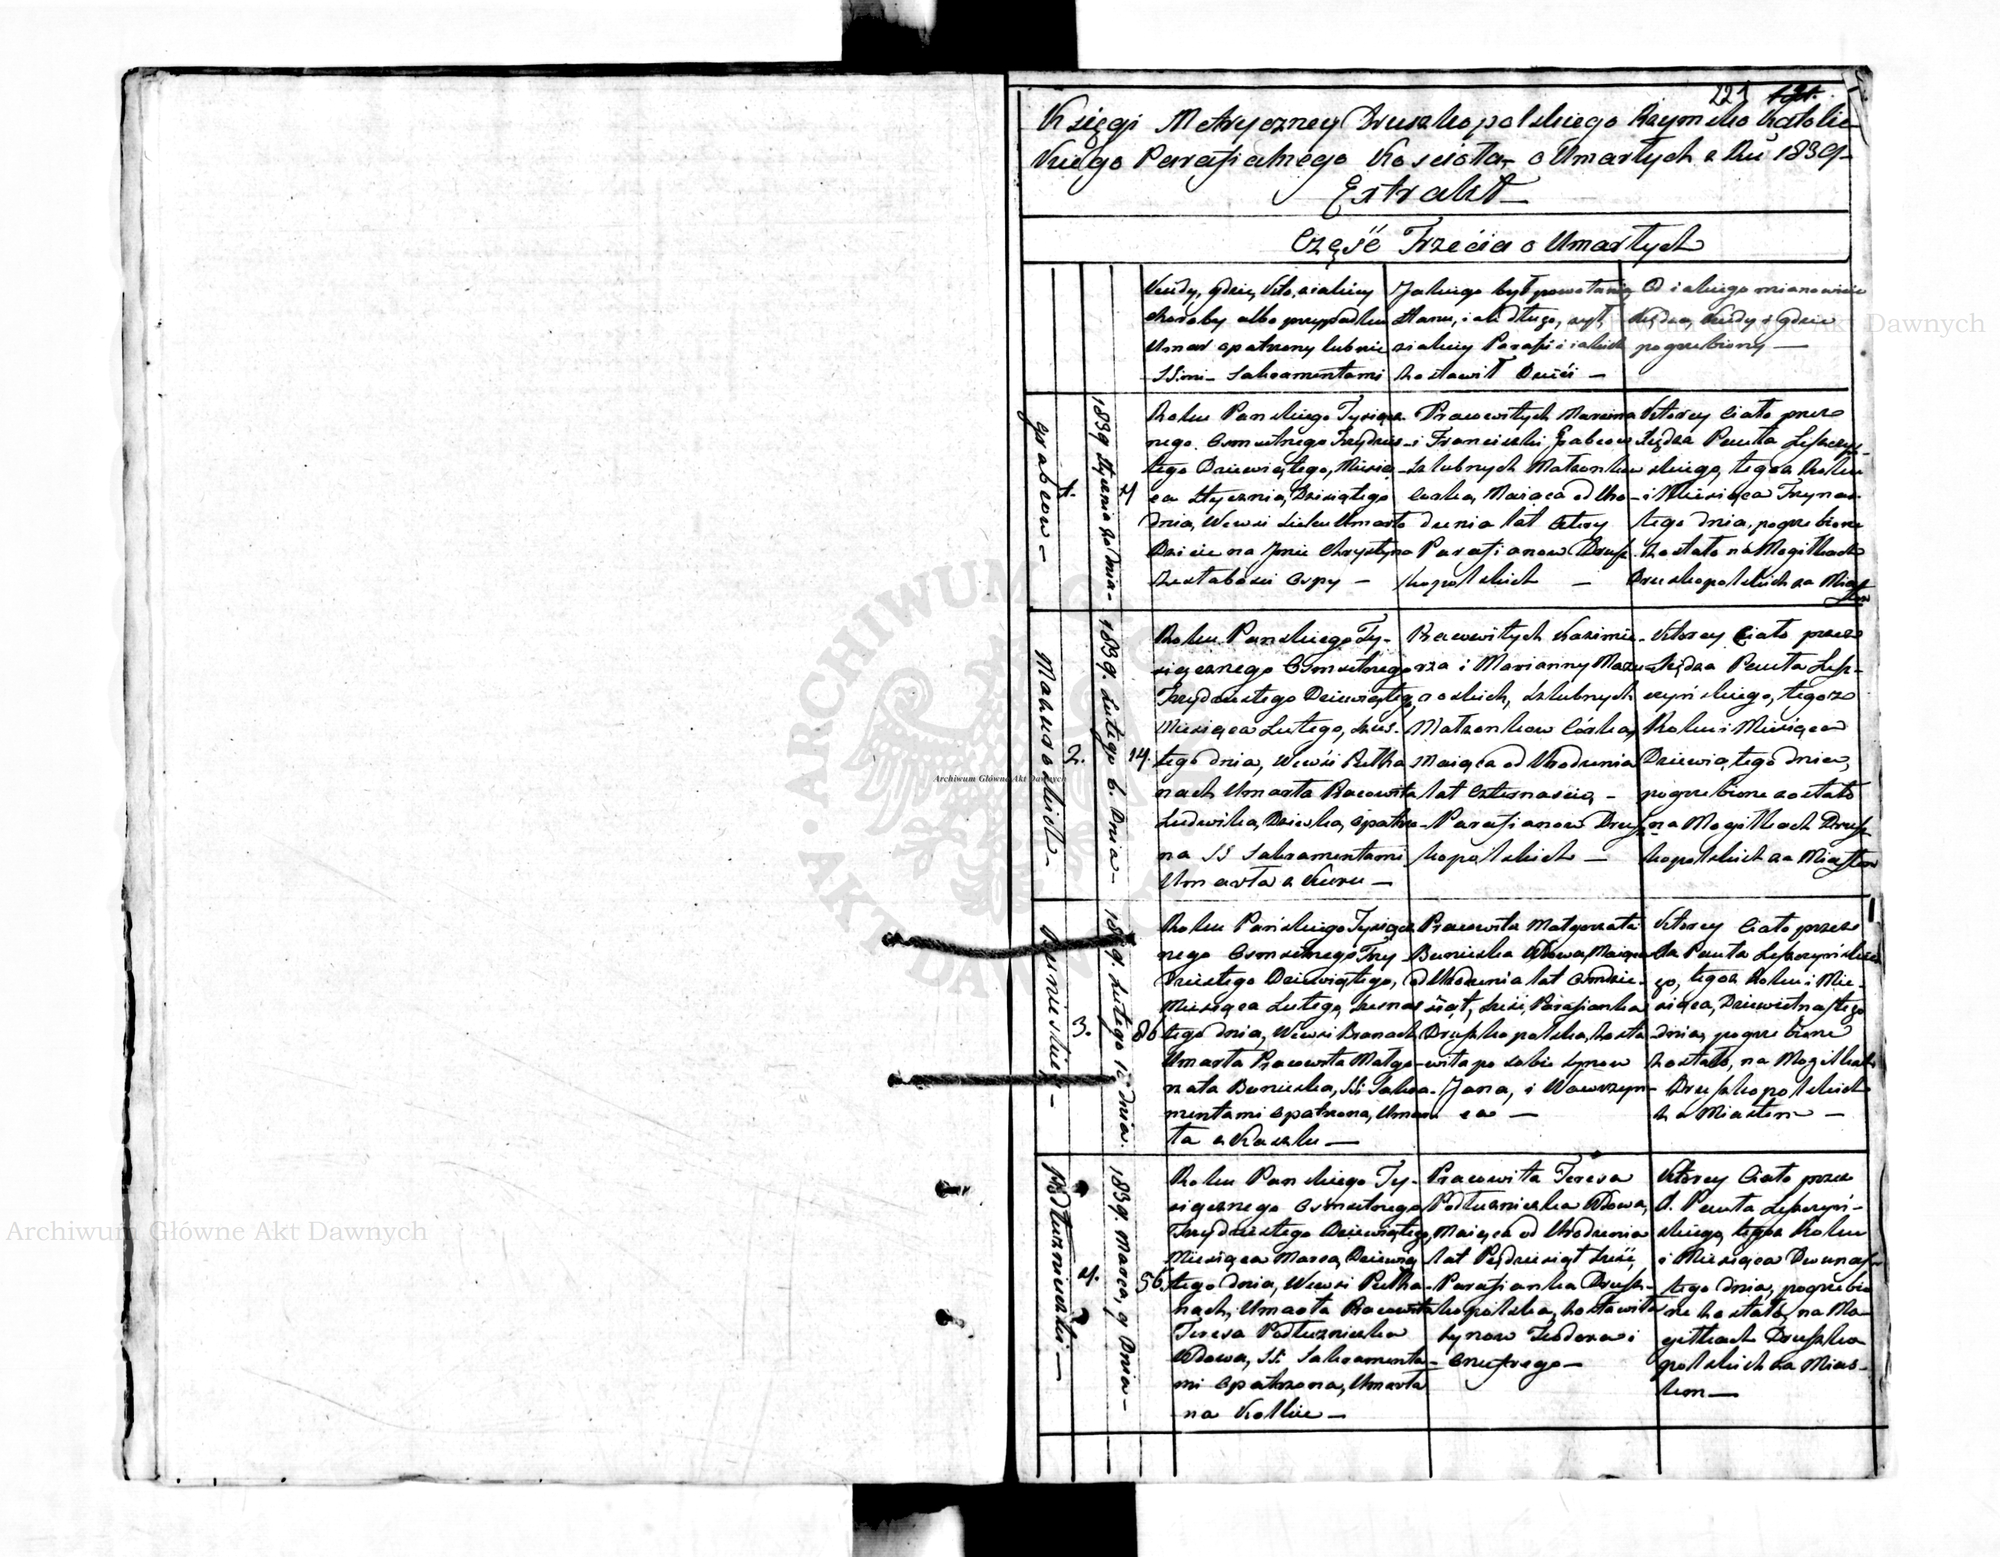 221
Księgi Metryczney Druszkopolskiego Rzymsko Katolic-
kiego Parafialnego Kościoła o Umarłych z Ru 1839
Extrakt
Część Trzecia o Umarłych
Kiedy, gdzie, kto, z iakiey
choroby albo przypadku
Umarł opatrzony lub nie
SSmi Sakramentami
Jakiego był powołania
Stanu, iak długo, żył
z iakiey Parafii i iakich
zostawił Dzieci
Od iakiego mianowicie
Xiędza kiedy i gdzie
pogrzebiony
Grabcow
1.
1839 Stycznia 10 Dnia
4
Roku Panskiego Tysiącz-
nego Osmsetnego Trzydzies-
tego Dziewiątego, Miesią-
ca Stycznia, Dziesiątego
dnia, Wewsi Umarło
Dziecie na Jmie Chrystyna
ze słabości Ospy
Pracowitych Marcina
i Franciszki Grabcow
Szlubnych Małzonkow
Corka, Maiąca od Uro-
dzenia lat Cztery
Parafianow Drusz-
kopolskich
Ktorey Ciało przez
Xiędza Pawła Leszczyn-
skiego, tegoz Roku
i Miesiąca Trzynas-
tego dnia, pogrzebione
zostało na Mogiłkach
Druszkopolskich za Mias-
tem
Mazurowskich
2.
1839. Lutego 6. Dnia
14.
Roku Panskiego Ty-
siącznego Osmsetnego
Trzydziestego Dziewiątego
Miesiąca Lutego, Szós-
tego dnia, Wewsi Pułha-
nach Umarła Pracowita
Ludwika, Dziewka, Opatrzo-
na SS Sakramentami
Umarła z Kuru
Pracowitych Kazimie-
rza i Marianny Mazu-
rowskich, Szlubnych
Małzonkow Córka,
Maiąca od Urodzenia
lat Czternaście,
Parafianow Drusz-
kopolskich
Ktorey Ciało przez
Xiędza Pawła Lesz-
czyńskiego, tegoz
Roku i Miesiąca
Dziewiątego dnia,
pogrzebione zostało
na Mogiłkach Drusz-
kopolskich za Miastem
3.
1839. Lutego 16 dnia
86
Roku Pańskiego Tysiącz-
nego Osmsetnego Trzy-
dziestego Dziewiątego,
Miesiąca Lutego, Szesnas-
tego dnia, Wewsi Branach
Umarła Pracowita Małgo-
rzata Buniecka, SS Sakra-
mentami Opatrzona, Umar-
ła z Kaszlu
Pracowita Małgorzata
Buniecka Wdowa, Maiąca
od Urodzenia lat Osmdzie-
siąt, Sześć, Parafianka
Druszkopolska, zosta-
wiła po sobie synow
Jana, i Wawrzyn-
ca
Ktorey Ciało przez
Xa Pawła Leszczyńskie-
go, tegoz Roku i Mie-
siąca, Dziewietnastego
dnia, pogrzebione
zostało, na Mogiłkach
Druszkopolskich
za Miastem
4.
1839. Marca, 9 Dnia
56
Roku Panskiego Ty-
siącznego Osmsetnego
Trzydziestego Dziewiątego,
Miesiąca Marca, Dziewią-
tego dnia, Wewsi Pułha-
nach, Umarła Pracowita
Teresa Podłuzniecka
Wdowa, SS Sakramenta-
mi Opatrzona, Umarła
na Kolkie
Pracowita Teresa
Podłuzniecka Wdowa,
Maiąca od Urodzenia
lat Pięćdziesiąt Sześć,
Parafianka Drusz-
kopolska, zostawiła
synow Teodora i
Onufrego
Ktorey Ciało przez
X. Pawła Leszczyń-
skiego, tegoz Roku
i Miesiąca Dwunas-
tego dnia, pogrzebio-
ne zostało, na Mo-
giłkach Druszko-
polskich za Mias-
tem
Archiwum Główne Akt Dawnych
Archiwum Główne Akt Dawnych
Archiwum Główne Akt Dawnych